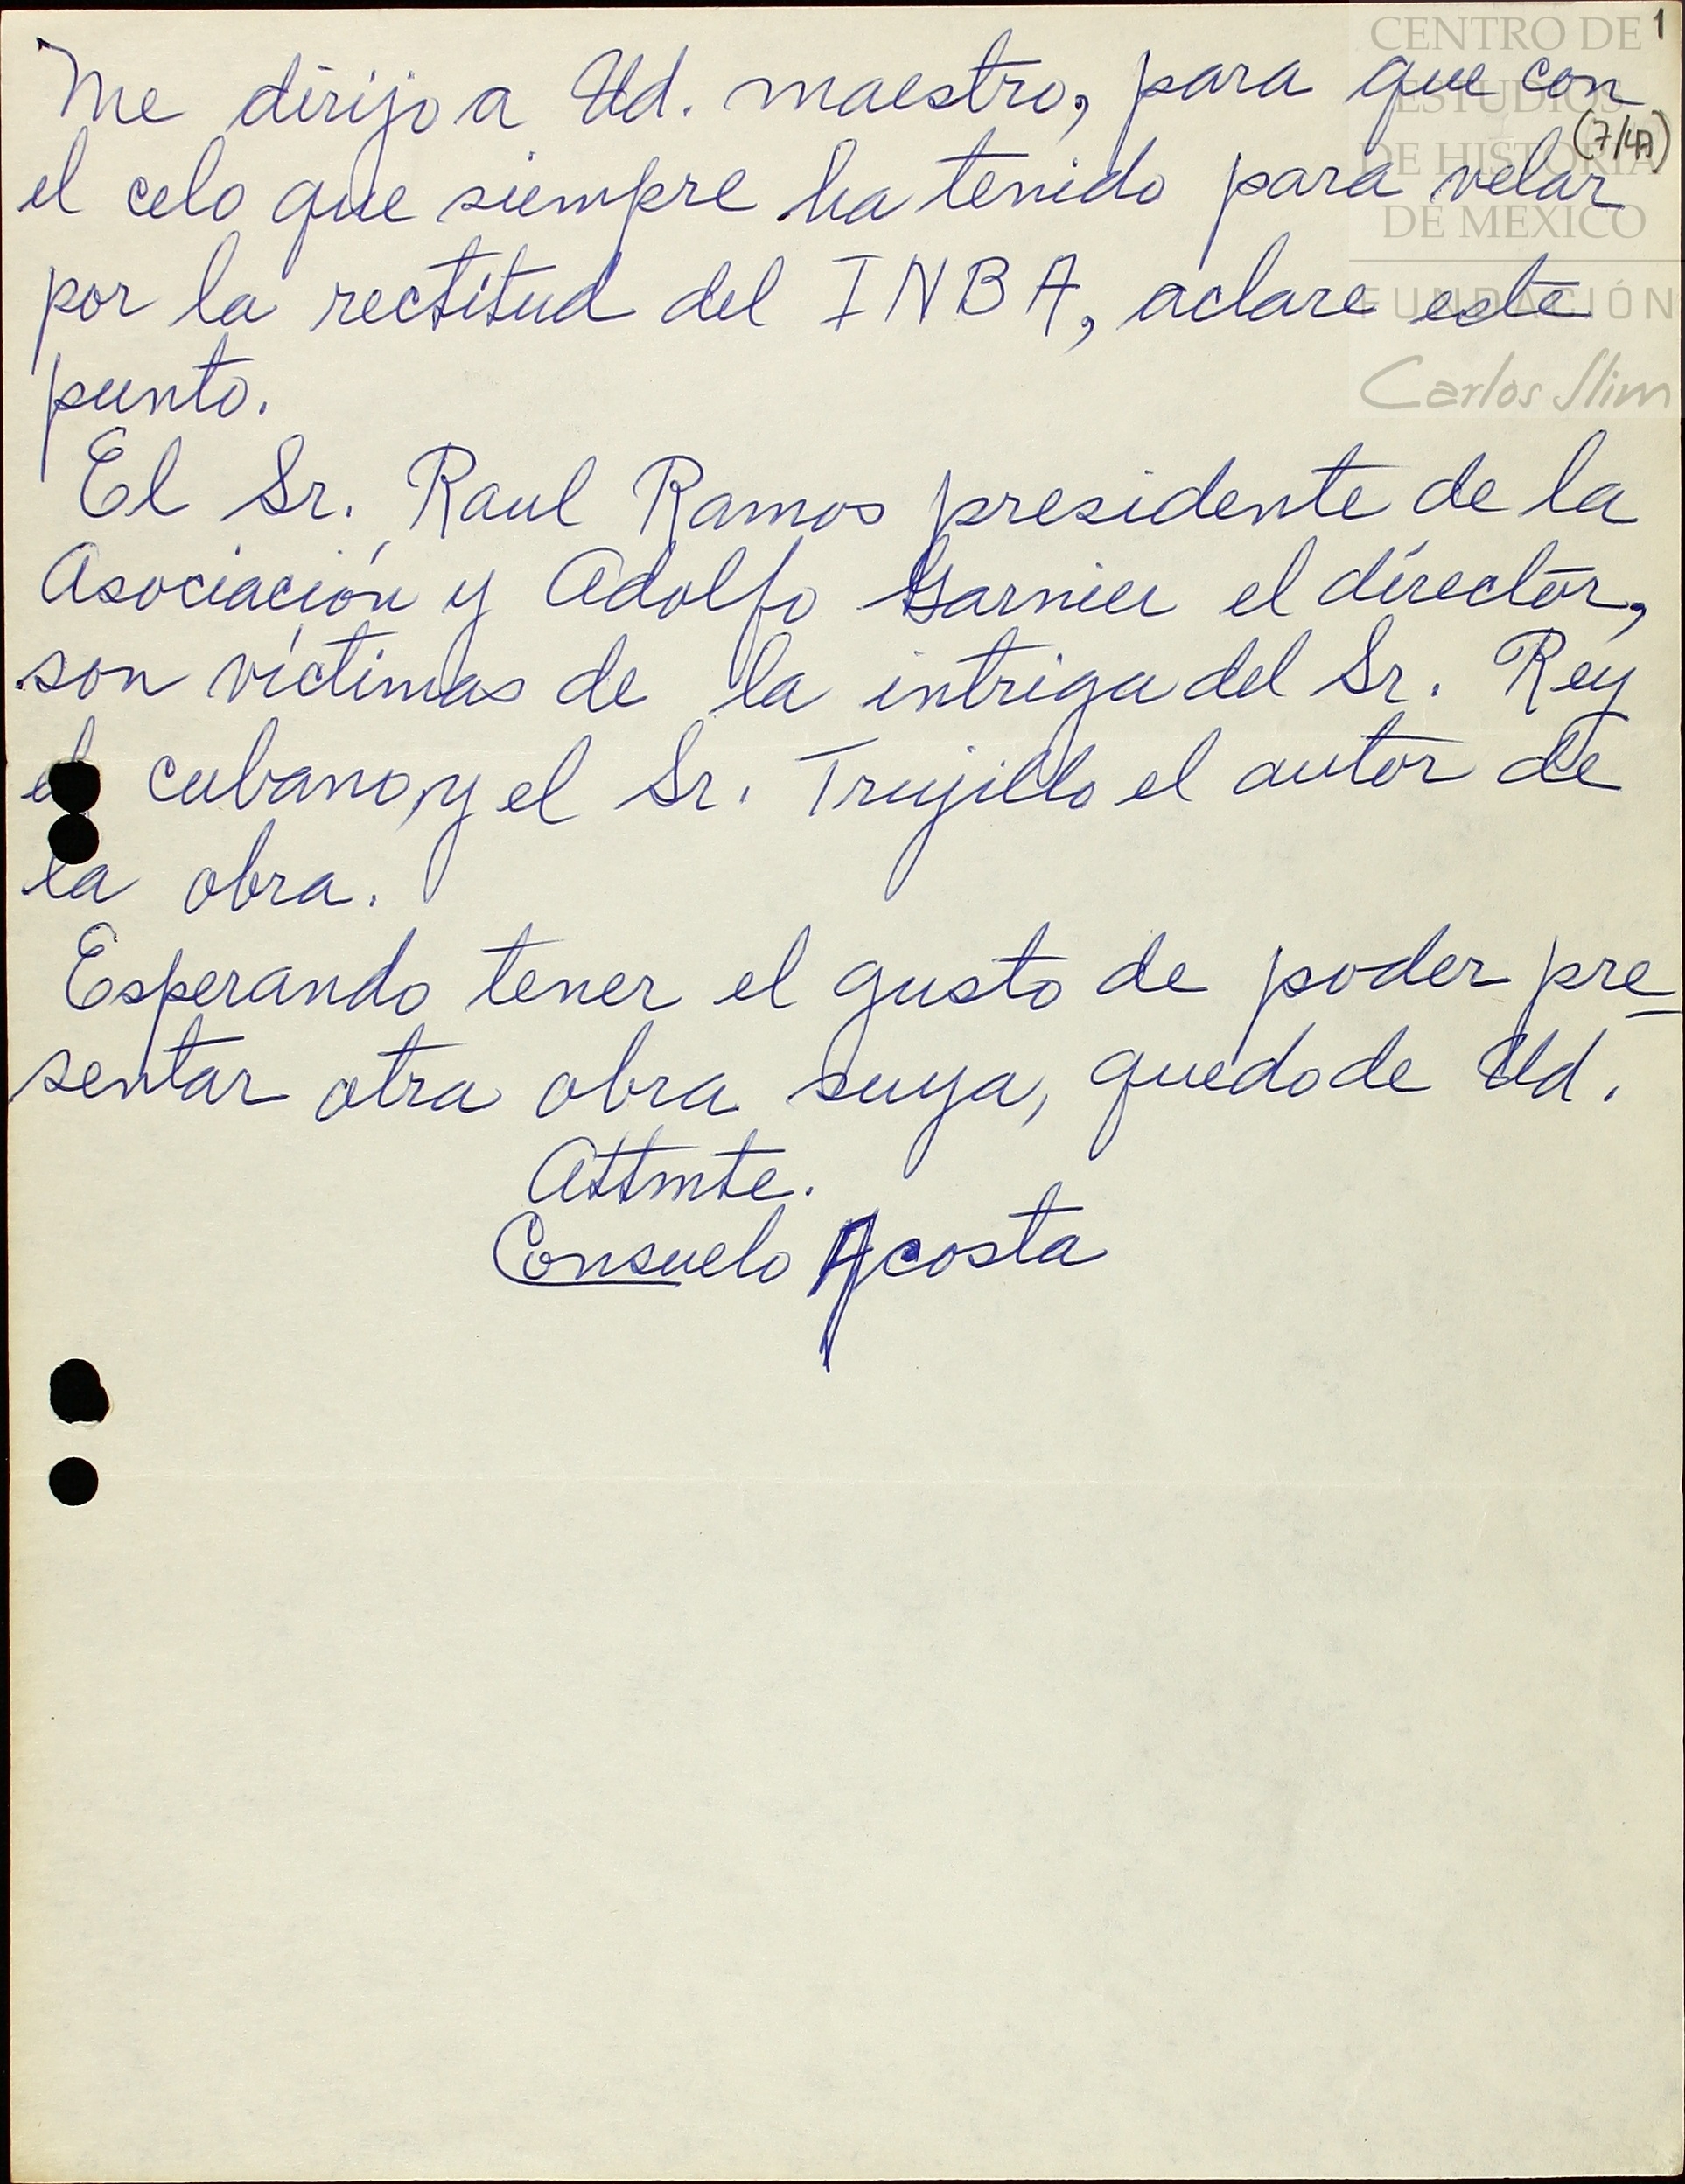 CENTRO DE
ESTUDIOS
DE HISTORIA
DE MEXICO
FUNDACIÓN
Carlos Slim
1
(7/4A)
Me dirijo a Ud. maestro, para que con
el celo que siempre ha tenido para velar
por la rectitud del INBA, aclare este
punto.
El Sr. Raul Ramos presidente de la
Asociación y Adolfo Garnier el director,
son víctimas de la intriga del Sr. Rey
el cubano, y el Sr. Trujillo el autor de
la obra.
Esperando tener el gusto de poder pre-
sentar otra obra suya, quedo de Ud.
Attmte.
Consuelo Acosta